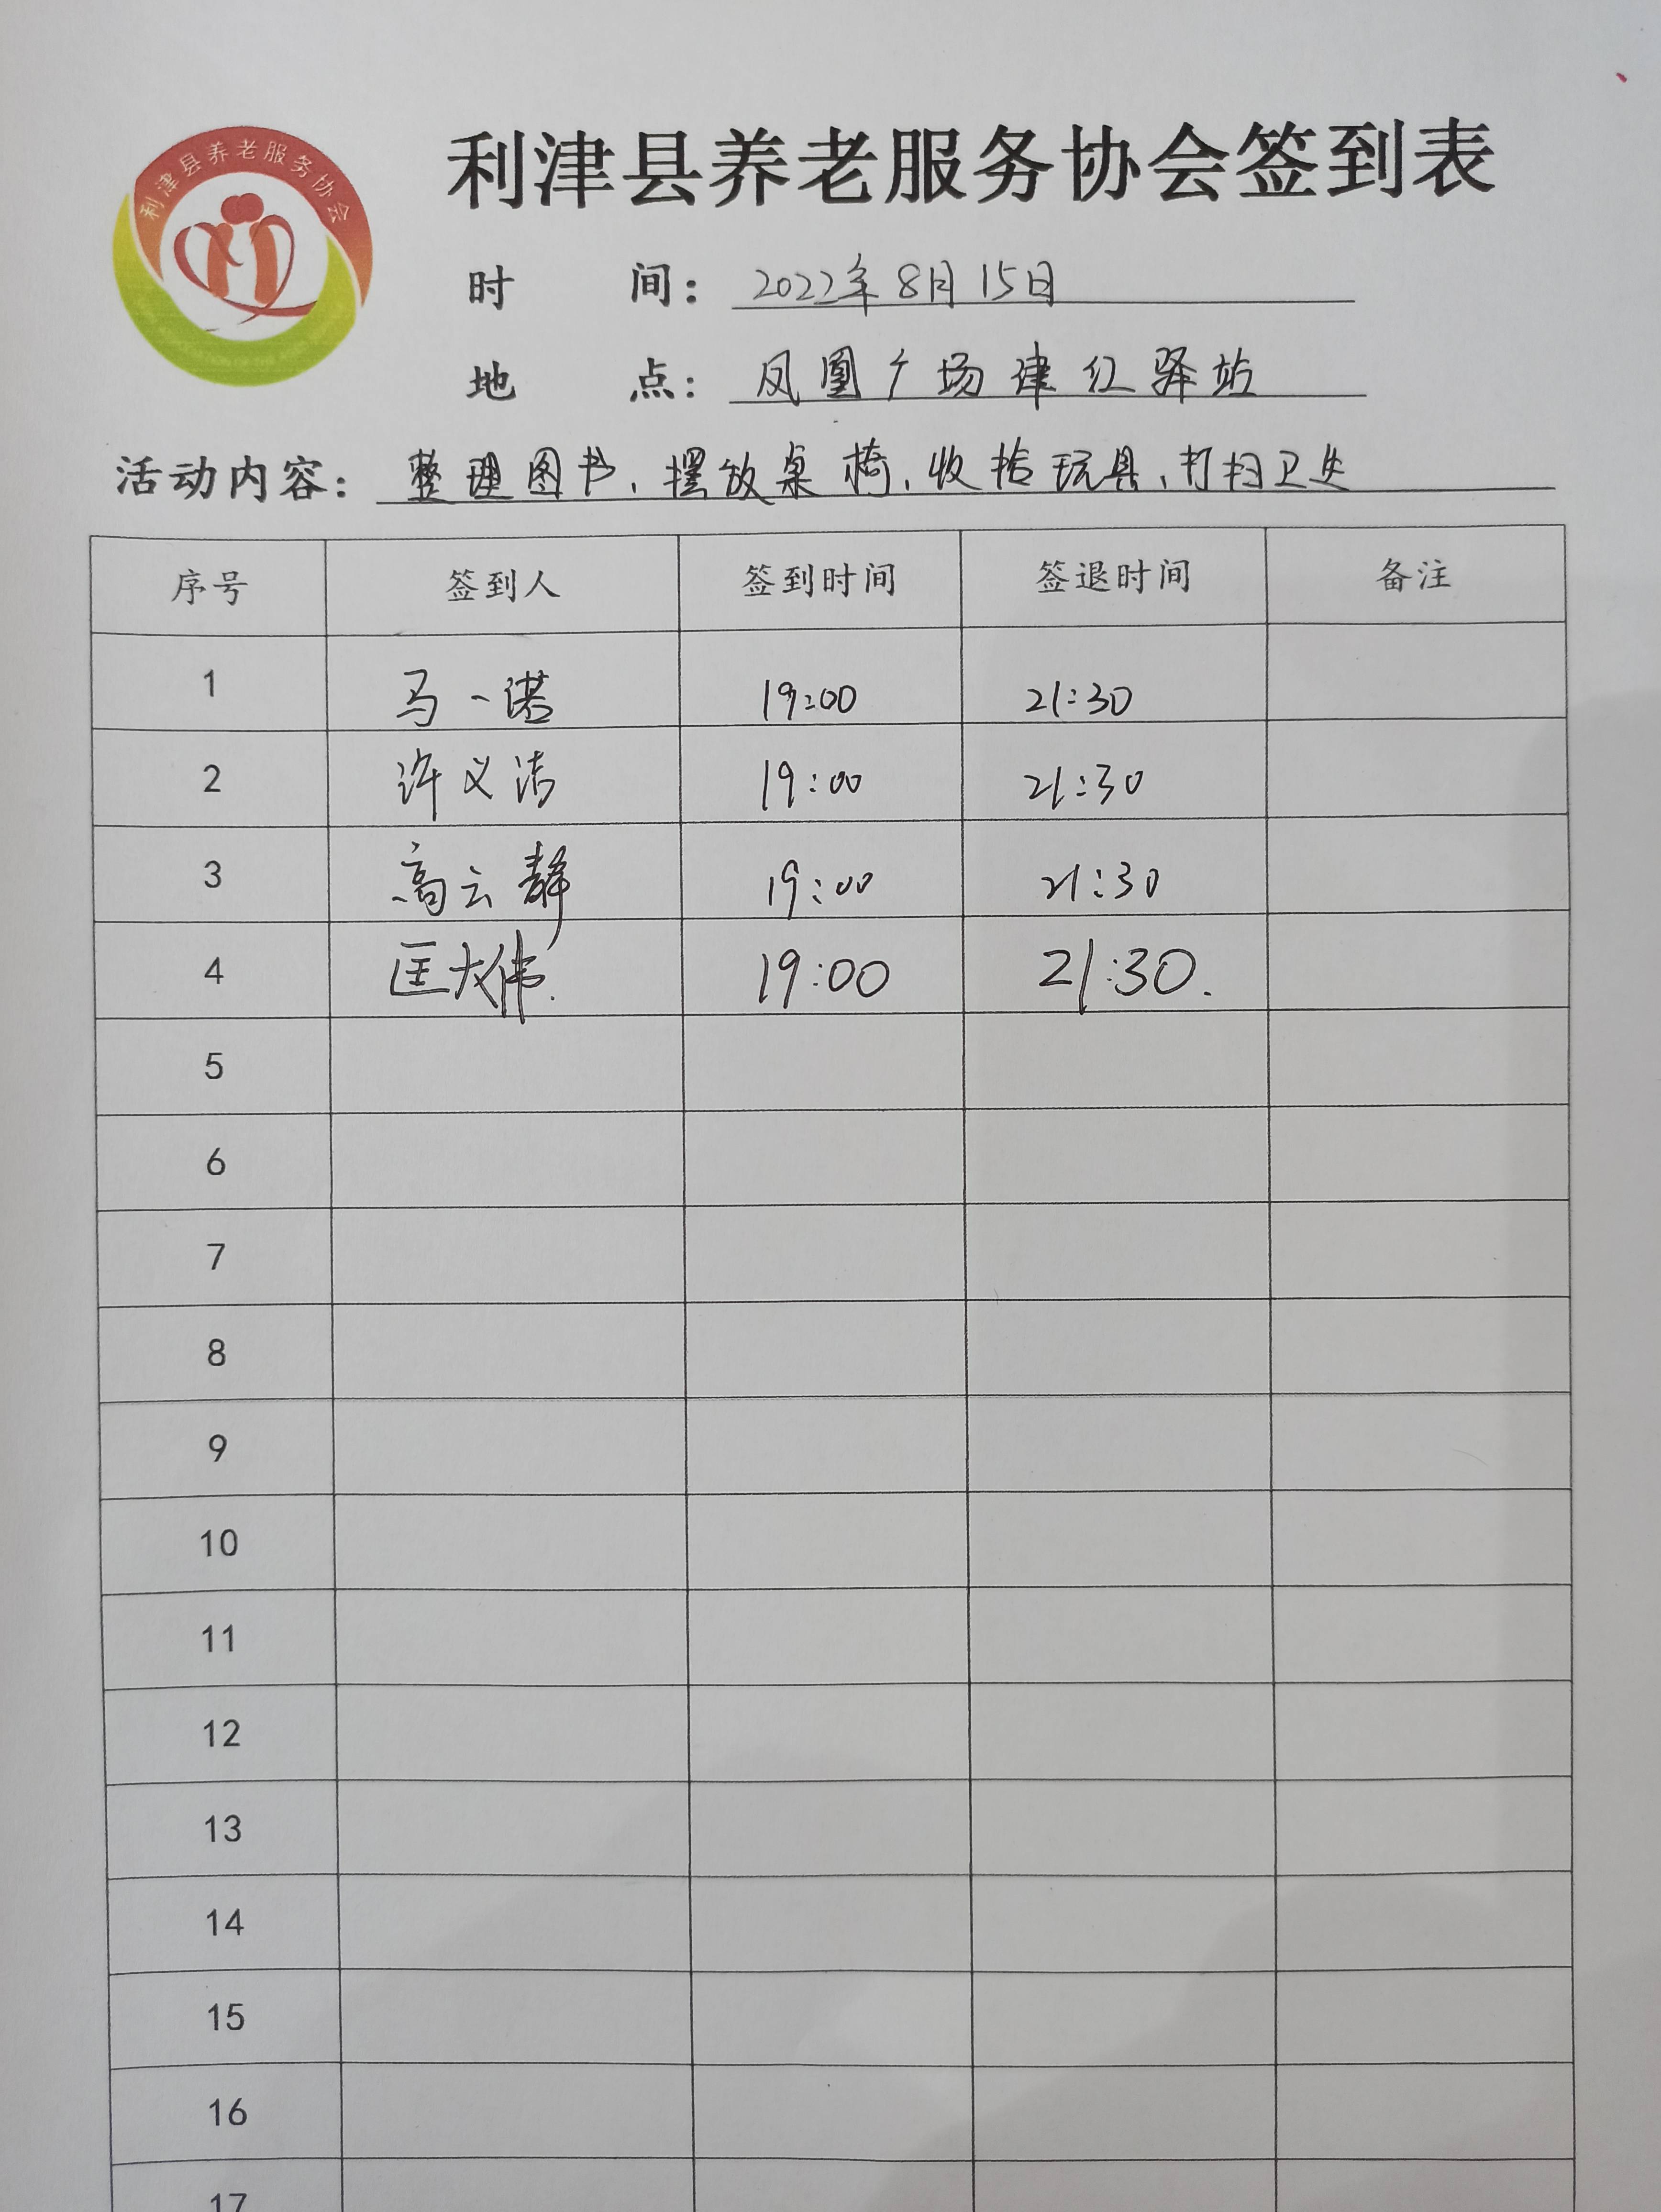 利津县养老服务协会
利津县养老服务协会签到表
时 间： 2022年8月15日
地 点： 凤凰广场津红驿站
活动内容： 整理图书，摆放桌椅，收拾玩具，打扫卫生
序号 签到人 签到时间 签退时间 备注
1 马一诺 19:00 21:30
2 许义洁 19:00 21:30
3 高云静 19:00 21:30
4 匡大伟. 19:00 21:30.
5
6
7
8
9
10
11
12
13
14
15
16
17